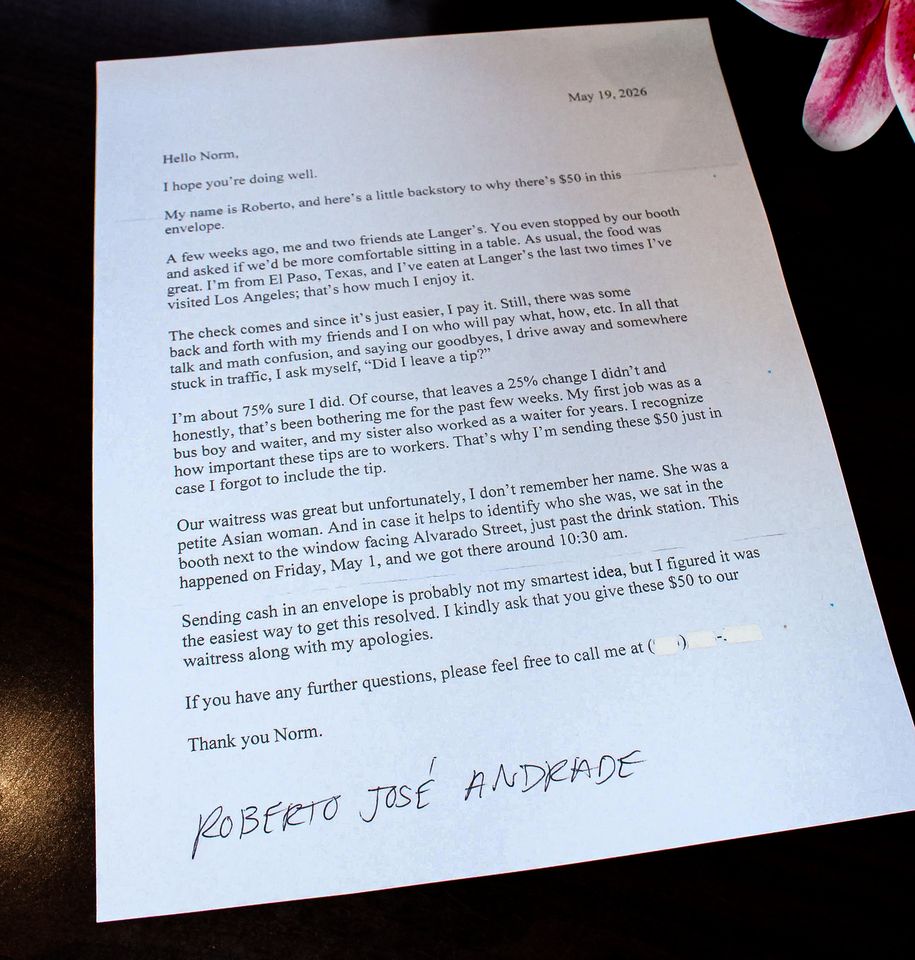 May 19, 2026
Hello Norm,
I hope you're doing well.
My name is Roberto, and here's a little backstory to why there's $50 in this
envelope.
A few weeks ago, me and two friends ate Langer's. You even stopped by our booth
and asked if we'd be more comfortable sitting in a table. As usual, the food was
great. I'm from El Paso, Texas, and I've eaten at Langer's the last two times I've
visited Los Angeles; that's how much I enjoy it.
The check comes and since it's just easier, I pay it. Still, there was some
back and forth with my friends and I on who will pay what, how, etc. In all that
talk and math confusion, and saying our goodbyes, I drive away and somewhere
stuck in traffic, I ask myself, "Did I leave a tip?"
I'm about 75% sure I did. Of course, that leaves a 25% change I didn't and
honestly, that's been bothering me for the past few weeks. My first job was as a
bus boy and waiter, and my sister also worked as a waiter for years. I recognize
how important these tips are to workers. That's why I'm sending these $50 just in
case I forgot to include the tip.
Our waitress was great but unfortunately, I don't remember her name. She was a
petite Asian woman. And in case it helps to identify who she was, we sat in the
booth next to the window facing Alvarado Street, just past the drink station. This
happened on Friday, May 1, and we got there around 10:30 am.
Sending cash in an envelope is probably not my smartest idea, but I figured it was
the easiest way to get this resolved. I kindly ask that you give these $50 to our
waitress along with my apologies.
If you have any further questions, please feel free to call me at ( ) -.
Thank you Norm.
ROBERTO JOSÉ ANDRADE